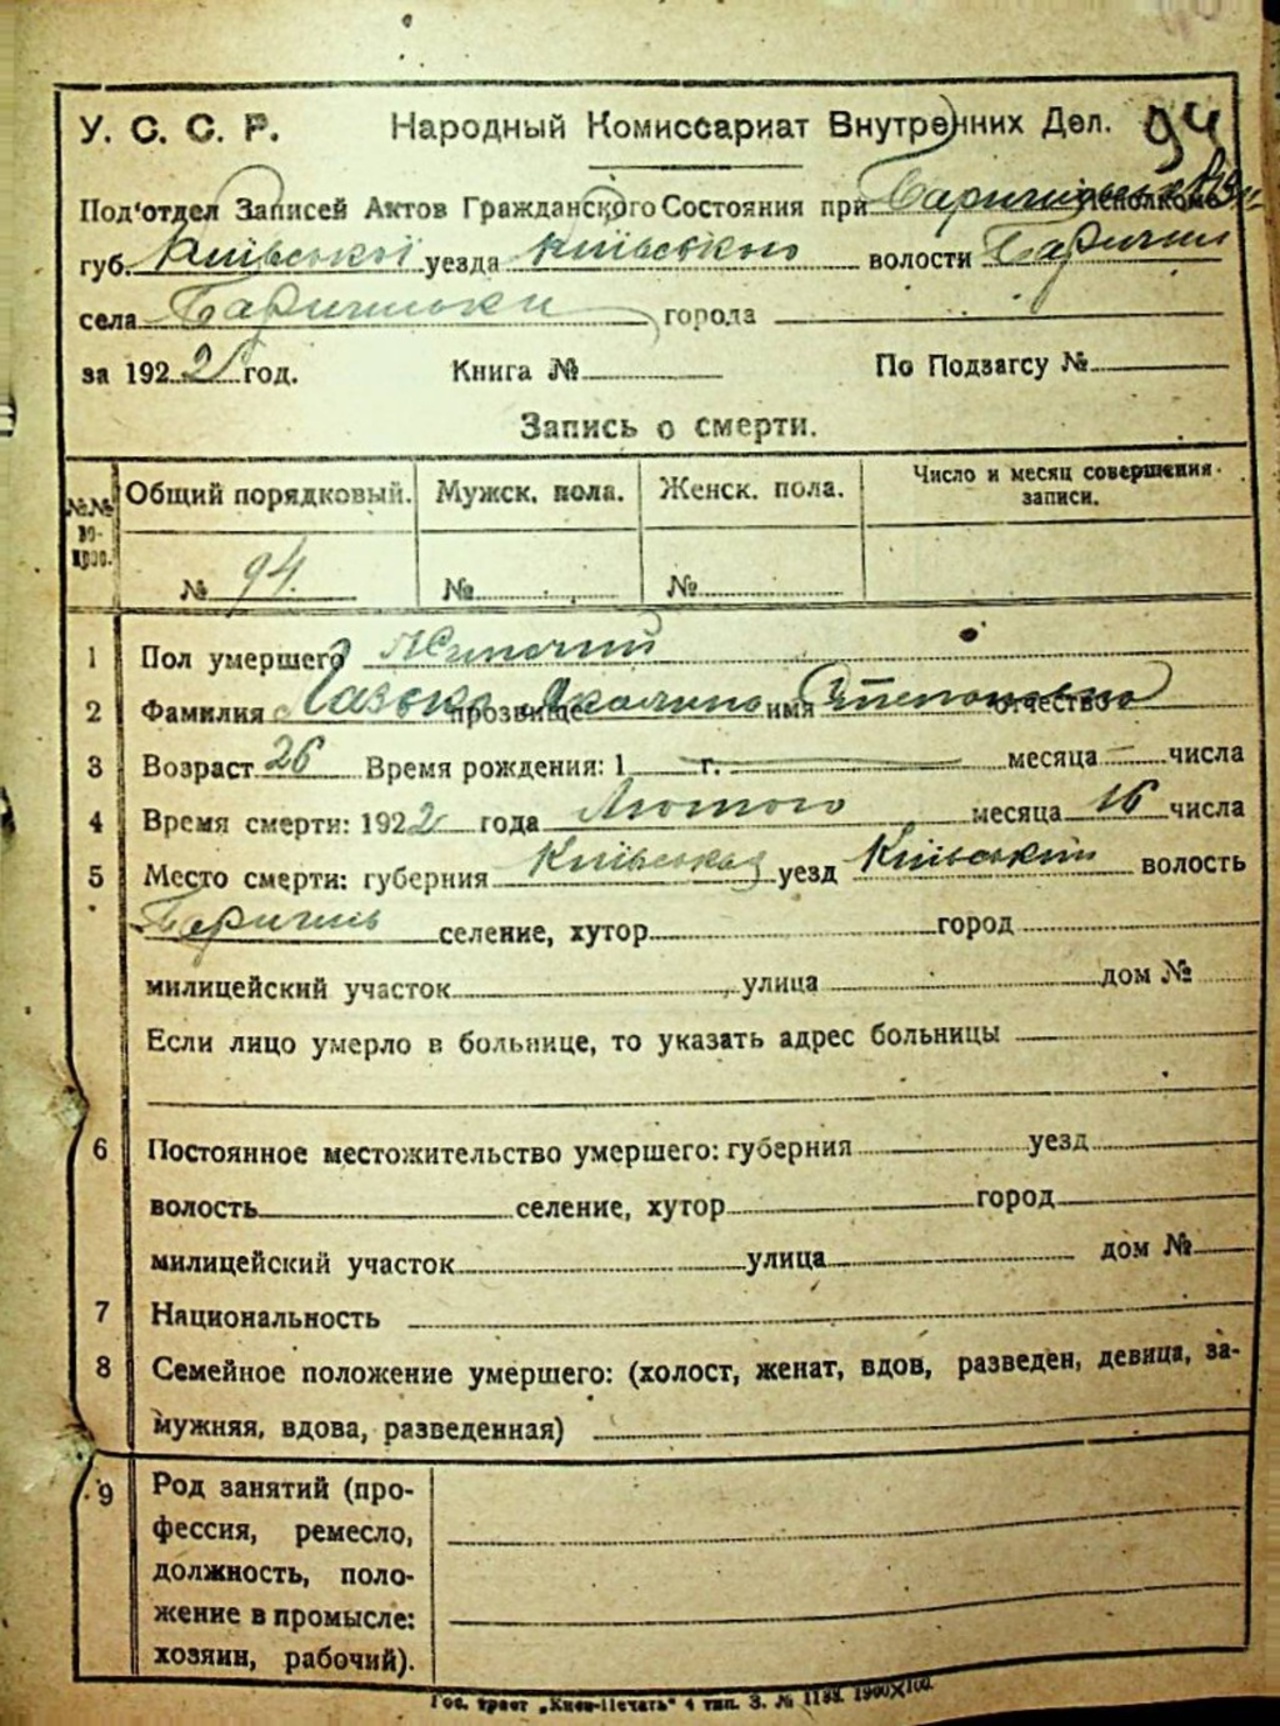 У. С. С. Р. Народный Комиссариат Внутренних Дел. 94
Под'отдел Записей Актов Гражданского Состояния при исполкоме
губ. Київської уезда Київського волости
села города
за 1922 год. Книга № По Подзагсу №
Запись о смерти.
№№ во-прос. Общий порядковый. Мужск. пола. Женск. пола. Число и месяц совершения записи.
№ 94. № №
1 Пол умершего Жиночий
2 Фамилия прозвище имя отчество
3 Возраст 26 Время рождения: 1 г. месяца числа
4 Время смерти: 1922 года Лютого месяца 16 числа
5 Место смерти: губерния Київська уезд Київський волость
селение, хутор город
милицейский участок улица дом №
Если лицо умерло в больнице, то указать адрес больницы
6 Постоянное местожительство умершего: губерния уезд
волость селение, хутор город
милицейский участок улица дом №
7 Национальность
8 Семейное положение умершего: (холост, женат, вдов, разведен, девица, за-
мужняя, вдова, разведенная)
9 Род занятий (про-
фессия, ремесло,
должность, поло-
жение в промысле:
хозяин, рабочий).
Гос. трест „Киев-Печать" 4 тип. З. № 1133. 1900×100.